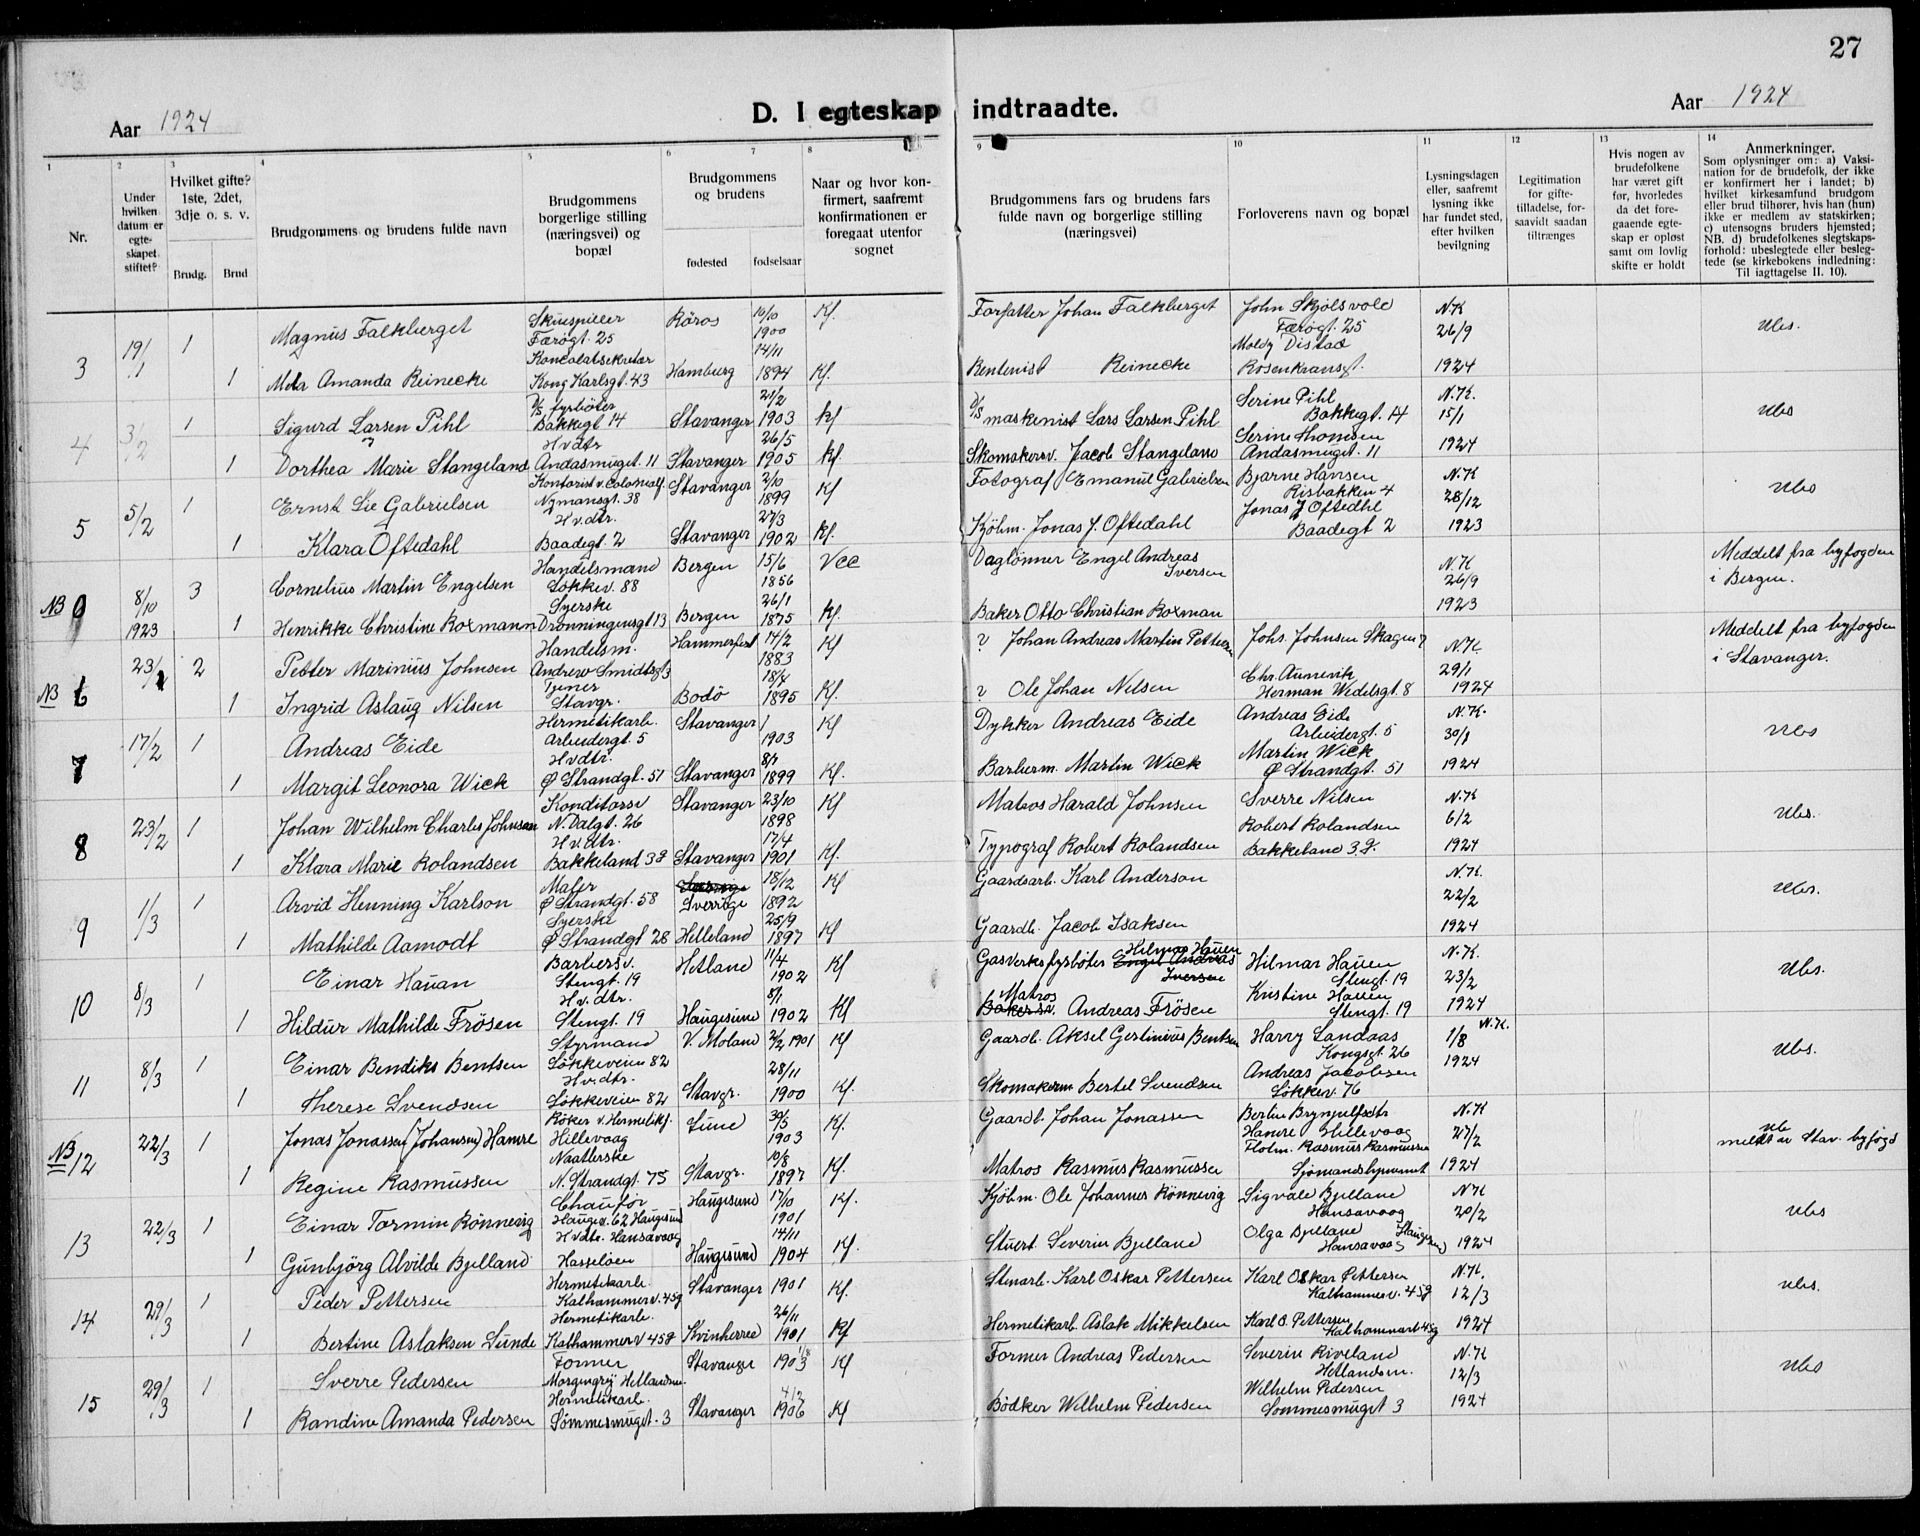 27
Aar 1924
D. I egteskap indtraadte.
Aar 1924
1 2 3 4 5 6 7 8 9 10 11 12 13 14
Nr.
Under hvilken datum er egte-skapet stiftet?
Hvilket gifte? 1ste, 2det, 3dje o. s. v.
Brudg. Brud
Brudgommens og brudens fulde navn
Brudgommens borgerlige stilling (næringsvei) og bopæl
Brudgommens og brudens
fødested fødselsaar
Naar og hvor kon-firmert, saafremt konfirmationen er foregaat utenfor sognet
Brudgommens fars og brudens fars fulde navn og borgerlige stilling (næringsvei)
Forloverens navn og bopæl
Lysningsdagen eller, saafremt lysning ikke har fundet sted, efter hvilken bevilgning
Legitimation for gifte-tilladelse, for-saavidt saadan tiltrænges
Hvis nogen av brudefolkene har været gift før, hvorledes da det fore-gaaende egte-skap er opløst samt om lovlig skifte er holdt
Anmerkninger.
Som oplysninger om: a) Vaksi-nation for de brudefolk, der ikke er konfirmert her i landet; b) hvilket kirkesamfund brudgom eller brud tilhører, hvis han (hun) ikke er medlem av statskirken; c) utensogns bruders hjemsted; NB. d) brudefolkenes slegtskaps-forhold: ubeslegtede eller besleg-tede (se kirkebokens indledning: Til iagttagelse II. 10).
3 19/1 1 Magnus Falkberget Skuespiller Færøgt. 25 Røros 10/10 1900 Kf. Forfatter Johan Falkberget John Skjølsvold Færøgt. 25 N.K 26/9 1924 Ubs.
1 Meta Amanda Reinecke Konsulatsekretær Kong Karlsgt. 43 Hamburg 14/11 1894 Kf. Rentenist Reinecke Moldy Distad Rosenkransgt.
4 3/2 1 Sigurd Larsen Pihl D/S fyrbøter Bakkegt 14 Stavanger 21/2 1903 Kf D/S maskenist Lars Larsen Pihl Serine Pihl Bakkegt. 14 N.K. 15/1 1924 Ubs
1 Dorthea Marie Stangeland Hvdtr Andasmuget. 11 Stavanger 26/5 1905 Kf. Skomakersv. Jacob Stangeland Serine Thomsen Andasmuget. 11
5 5/2 1 Ernst Lie Gabrielsen Kontorist v. Colonialf Nymansgt. 38 Stavanger 2/10 1899 Kf Fotograf Emanuel Gabrielsen Bjarne Hansen Risbakken 4 N.K 28/12 1923 Ubs
1 Klara Oftedahl Hvdtr. Baadegt. 2 Stavanger 27/3 1902 Kf. Kjøbm. Jonas J. Oftedahl Jonas J Oftedhl Baadegt 2
NB 0 8/10 1923 3 Cornelius Martin Engelsen Handelsmand Løkkev. 88 Bergen 15/6 1856 Daglønner Engel Andreas Iversen N.K 26/9 1923 Meddelt fra byfogden i Bergen.
1 Henrikke Christine Roxmann Syerske Dronningensgt 13 Bergen 26/1 1875 Kf. Baker Otto Christian Roxman
NB 6 2 Petter Marinius Johnsen Handelsm. Andrew Smidtsgt 3 Hammerfest 14/2 1883 Kf ? Johan Andreas Martin Pettersen Johs. Johnsen Skagen 7 N.K. 29/1 1924 Meddelt fra byfogden i Stavanger.
1 Ingrid Aslaug Nilsen Tjener Stavgr. Bodø 18/4 1895 Kf. ? Ole Johan Nelsen Chr. Aunevik Herman Wedelsgt 8
7 17/2 1 Andreas Eide Hermetikarb. Arbeidergt. 5 Stavanger 1903 Kf Dykker Andreas Eide Andreas Eide Arbeidergt. 5 N.K. 30/1 1924 Ubs
1 Margit Leonora Wick Hvdtr. Ø Strandgt. 51 Stavanger 1899 Kf. Barberm. Martin Wick Martin Wick Ø Strandgt. 51
8 23/2 1 Johan Wilhelm Charles Johnsen Konditorsv N. Dalgt. 26 Stavanger 23/10 1898 Kf Matros Harald Johnsen Sverre Nilsen N.K 6/2 1924 Ubs.
1 Klara Marie Rolandsen Hvdtr. Bakkeland 3g Stavanger 17/4 1901 Kf. Typograf Robert Rolandsen Robert Rolandsen Bakkeland 3g.
9 1/3 1 Arvid Henning Karlson Maler Ø Strandgt. 58 Sverrige 18/12 1892 Kf Gaardsarb. Karl Anderson N.K. 22/2 1924 Ubs.
1 Mathilde Aamodt Syerske Ø Strandgt 28 Helleland 25/9 1897 Kf Gaardb. Jacob Isaksen
10 8/3 1 Einar Hauan Barbersv. Stengt. 19 Hetland 11/4 1902 Kf Gasverksfyrbøter Hilmar Hauen Engel Andreas Iversen Hilmar Hauen Stengt. 19 N.K. 23/2 1924 Ubs.
1 Hildur Mathilde Frösen Hvdtr. Stengt. 19 Haugesund 8/1 1902 Kf Matros Bakersv. Andreas Frösen Kristine Hauen Stengt. 19
11 8/3 1 Einar Bendiks Bentsen Styrmand Løkkeveien 82 V. Moland 2/2 1901 Kf Gaardb. Aksel Gertinius Bentsen Harry Landaas Kongsgt. 26 N.K. 1/8 1924 Ubs.
1 Therese Svendsen Hvdtr. Løkkeveien 82 Stavgr. 28/11 1900 Kf. Skomakerm Bertel Svendsen Andreas Jacobsen Løkkev. 76
NB 12 22/3 1 Jonas Jonassen (Johansen) Hamre Røker v. Hermetikf. Hillevaag Lund 30/5 1903 Kf. Gaardb. Johan Jonassen Hamre Hillevaag N.K 27/2 1924 Ub meldt av Stav. byfogd
1 Regine Rasmussen Naatlerske N. Strandgt. 75 Stavgr. 10/8 1897 Kf. Matros Rasmus Rasmussen Tholm. Rasmus Rasmussen Sjømandshjemmet
13 22/3 1 Einar Tormin Rönnevig Chaufför Haugev. 62 Haugesund Haugesund 17/10 1901 Kf. Kjöbm. Ole Johannes Rönnevig Sigvald Bjelland Hansavaag N.K 20/2 1924 Ubs
1 Gunbjörg Alvilde Bjelland Hvdtr. Hansavaag Hasseløen Haugesund 14/11 1904 Kf. Stuert. Severin Bjelland Olga Bjelland Hansavaag Haugesund
14 29/3 1 Peder Pettersen Hermetikarb. Kalhammerv. 45g Stavanger 1901 Kf. Stenarb. Karl Oskar Pettersen Karl Oskar Pettersen Kalhammerv. 45g N.K. 12/3 1924 Ubs.
1 Bertine Aslaksen Lunde Hermetikarb. Kalhammerv 45g Kvinherred 26/11 1901 Kf Hermetikarb. Aslak Mikkelsen Karl O. Pettersen Kalhammarb 45g
15 29/3 1 Sverre Pedersen Former Morgengry Hetlandsm. Stavanger 1/8 1903 Kf Former Andreas Pedersen Severin Riveland Hetlandsm. N.K 12/3 1924 Ubs
1 Randine Amanda Pedersen Hermetikarb. Sømmesmuget. 3 Stavanger 1906 Kf Bödker Wilhelm Pedersen Wilhelm Pedersen Sommesmuget 3